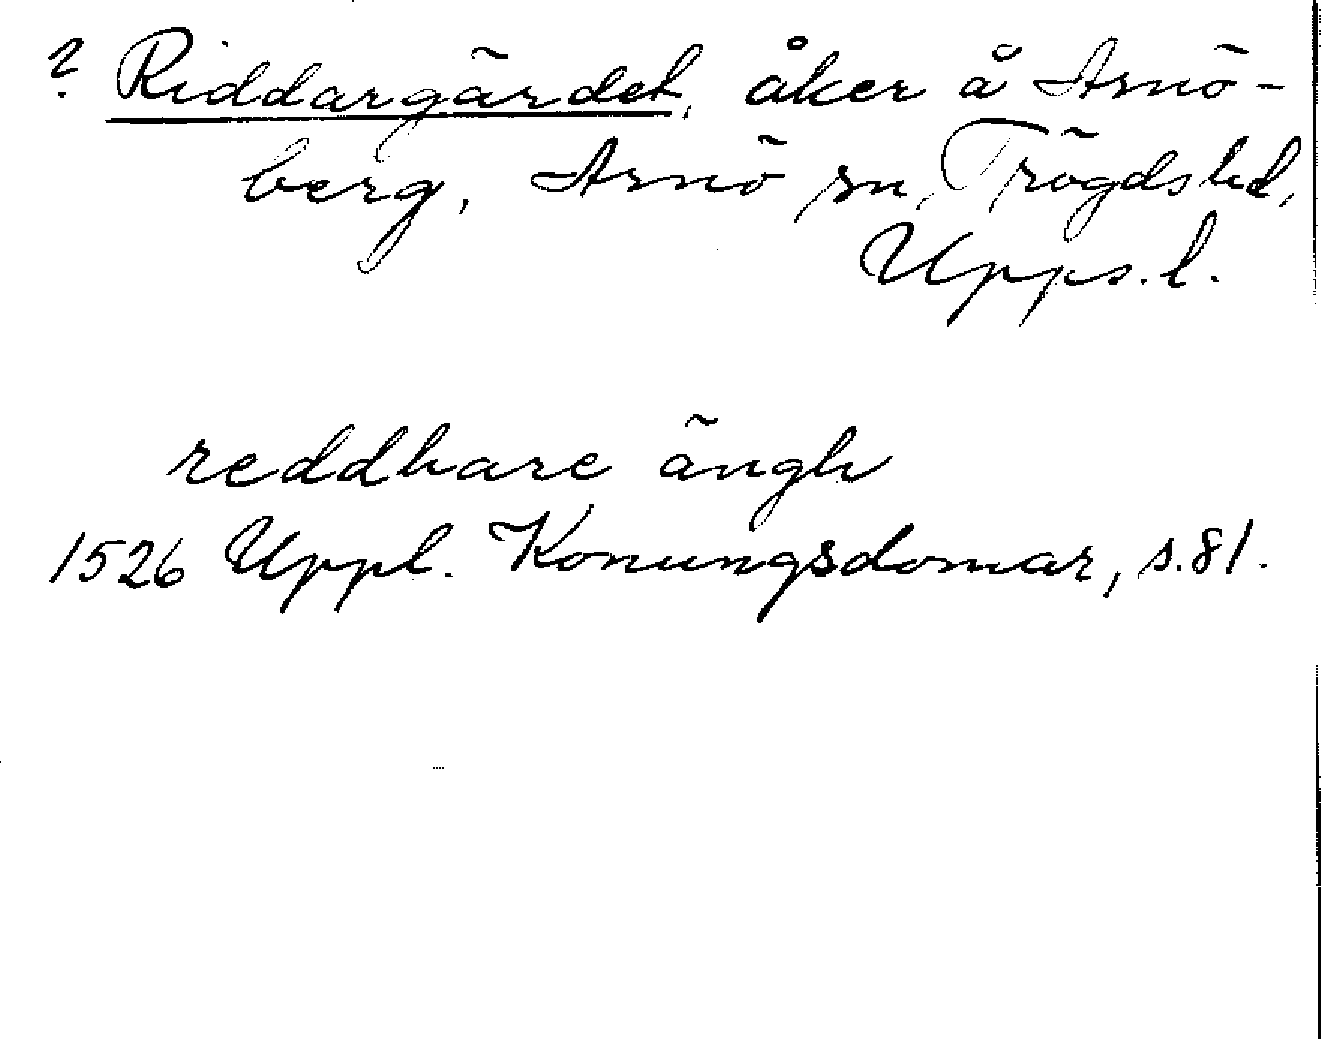 ? Riddargärdet, åker å Arnö-
berg, Arnö sn, Trögds hd,
Upps. l.
reddhare ängh
1526 Uppl. Konungsdomar, s. 81.